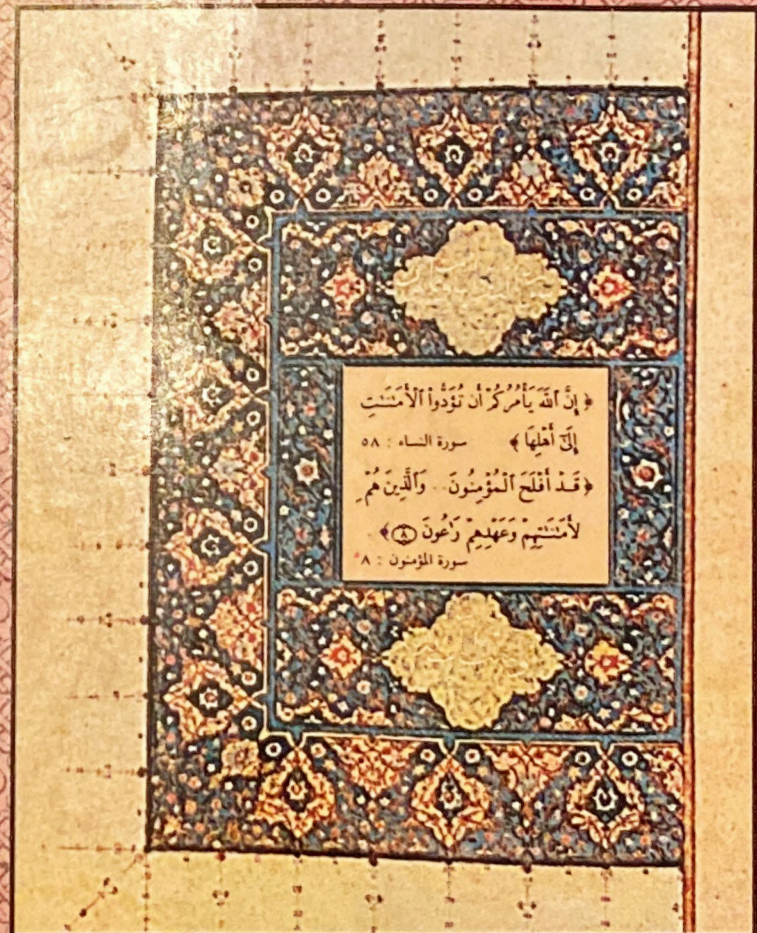 ﴿ إِنَّ ٱللَّهَ يَأْمُرُكُمْ أَن تُؤَدُّواْ ٱلْأَمَٰنَٰتِ
إِلَىٰٓ أَهْلِهَا ﴾ سورة النساء : ٥٨
﴿ قَدْ أَفْلَحَ ٱلْمُؤْمِنُونَ .. وَٱلَّذِينَ هُمْ
لِأَمَٰنَٰتِهِمْ وَعَهْدِهِمْ رَٰعُونَ ٨ ﴾
سورة المؤمنون : ٨